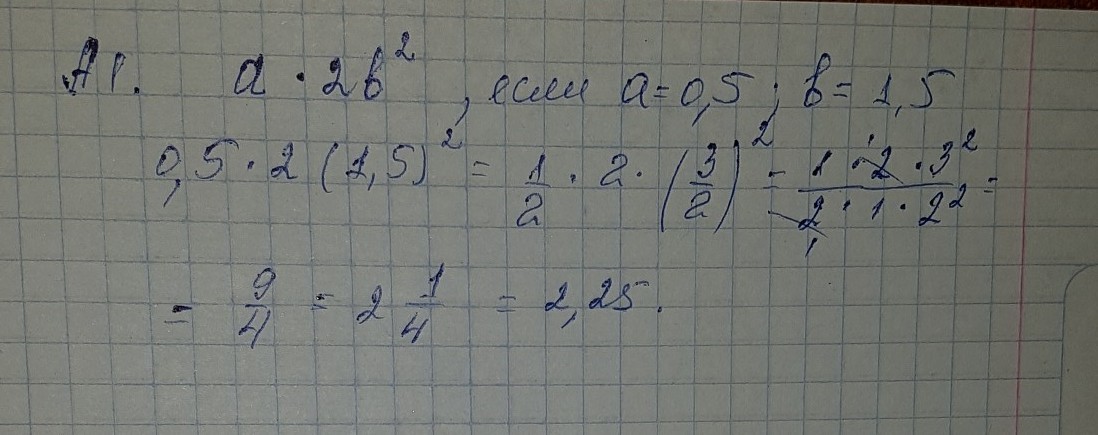 А1. a · 2b², если a = 0,5; b = 1,5
0,5 · 2 (1,5)² = 1/2 · 2 · (3/2)² = (1 · 2 · 3²)/(2 · 1 · 2²) =
= 9/4 = 2 1/4 = 2,25.